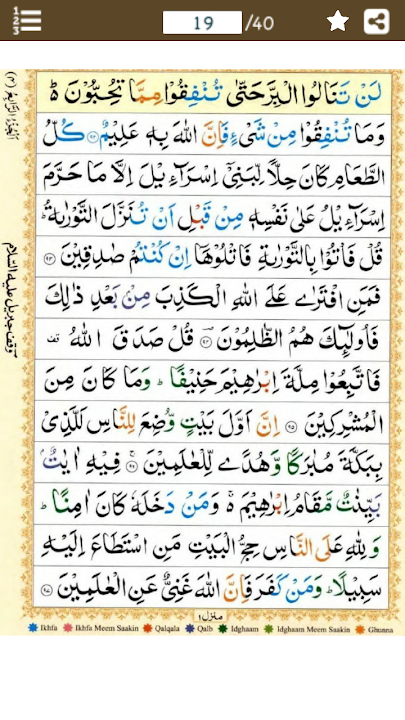 19 /40
لَنْ تَنَالُوا الْبِرَّ حَتّٰى تُنْفِقُوْا مِمَّا تُحِبُّوْنَ ؕ
وَمَا تُنْفِقُوْا مِنْ شَیْءٍ فَاِنَّ اللّٰهَ بِهٖ عَلِیْمٌ ﴿۹۲﴾ كُلُّ
الطَّعَامِ كَانَ حِلًّا لِّبَنِیْۤ اِسْرَآءِیْلَ اِلَّا مَا حَرَّمَ
اِسْرَآءِیْلُ عَلٰى نَفْسِهٖ مِنْ قَبْلِ اَنْ تُنَزَّلَ التَّوْرٰىةُ ؕ
قُلْ فَاْتُوْا بِالتَّوْرٰىةِ فَاتْلُوْهَاۤ اِنْ كُنْتُمْ صٰدِقِیْنَ ﴿۹۳﴾
فَمَنِ افْتَرٰى عَلَى اللّٰهِ الْكَذِبَ مِنْۢ بَعْدِ ذٰلِكَ
فَاُولٰٓئِكَ هُمُ الظّٰلِمُوْنَ ﴿۹۴﴾ قُلْ صَدَقَ اللّٰهُ
فَاتَّبِعُوْا مِلَّةَ اِبْرٰهِیْمَ حَنِیْفًا ؕ وَمَا كَانَ مِنَ
الْمُشْرِكِیْنَ ﴿۹۵﴾ اِنَّ اَوَّلَ بَیْتٍ وُّضِعَ لِلنَّاسِ لَلَّذِیْ
بِبَكَّةَ مُبٰرَكًا وَّهُدًى لِّلْعٰلَمِیْنَ ﴿۹۶﴾ فِیْهِ اٰیٰتٌۢ
بَیِّنٰتٌ مَّقَامُ اِبْرٰهِیْمَ ۚ۬ وَمَنْ دَخَلَهٗ كَانَ اٰمِنًا ؕ
وَلِلّٰهِ عَلَى النَّاسِ حِجُّ الْبَیْتِ مَنِ اسْتَطَاعَ اِلَیْهِ
سَبِیْلًا ؕ وَمَنْ كَفَرَ فَاِنَّ اللّٰهَ غَنِیٌّ عَنِ الْعٰلَمِیْنَ ﴿۹۷﴾
منزل ۱
Ikhfa Ikhfa Meem Saakin Qalqala Qalb Idghaam Idghaam Meem Saakin Ghunna
اَلْجُزْءُ الرَّابِعُ (۴)
وقف جبریل علیه السلام